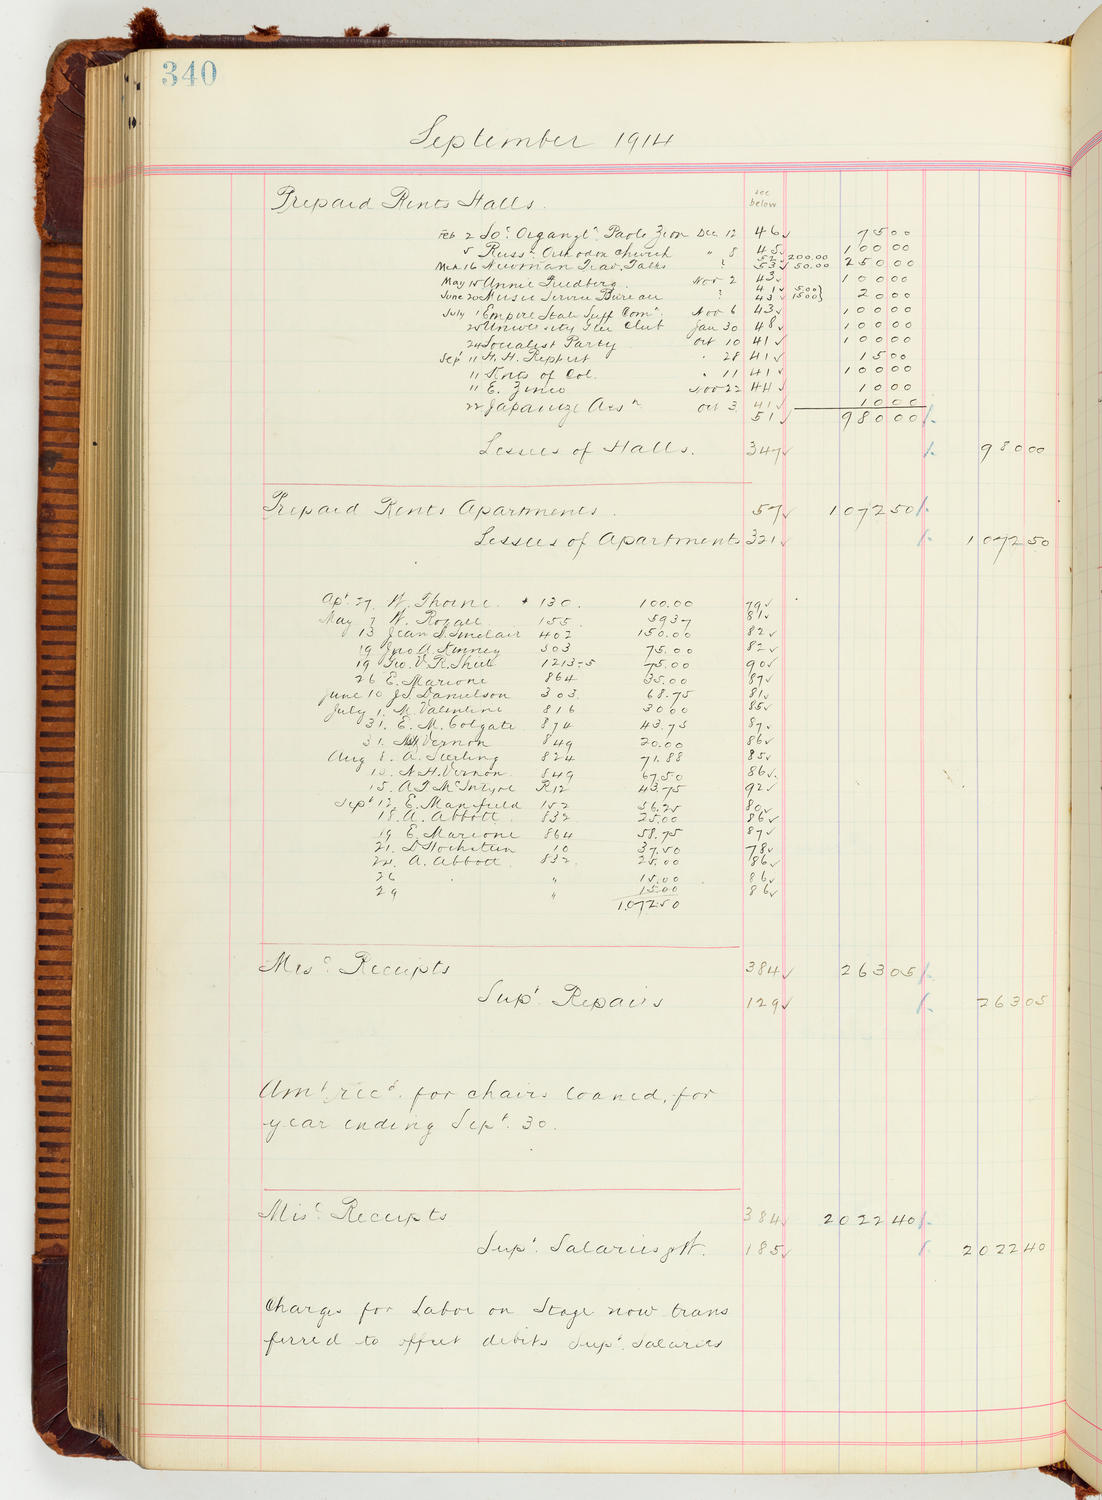 340
September 1914
Prepaid Rents Halls. see below
Feb 2 So. Organzt. Paole Zion Dec 12 46 75 00
5 Russ. Orthodox Church " 8 45 100 00
Mch 16 Newman Trav. Talks ? 52 200.00 53 50.00 250 00
May 15 Annie Friedberg. Nov 2 43 100 00
June 20 Music Service Bureau ? 41 5.00 43 15.00 20 00
July 1 Empire State Suff Comn. Nov 6 43 100 00
25 University Glee Club Jan 30 48 100 00
24 Socialist Party Oct 10 41 100 00
Sep 11 H. H. Reppert " 28 41 15 00
11 Knts of Col. " 11 41 100 00
11 E. Zinco Nov 22 44 10 00
22 Japanese Assn Oct 3 41 10 00
51 980 00
Lessees of Halls. 347 980 00
Prepaid Rents Apartments. 57 1072 50
Lessees of Apartments 321 1072 50
Apl. 27. W. Thorne. 130. 100.00 79
May 7 W. Royall 155. 59 37 81
13 Jean S. Sinclair 402 150.00 82
19 Jno A. Kenney 503 75.00 82
19 Geo. V. R. 1213-5 75.00 90
26 E. Marione 864 35.00 87
June 10 J. S. Danielson 303. 68.75 81
July 1. M. Valentine 816 30 00 85
31. E. M. Colgate 874 43.75 87
31. Vernon 849 20.00 86
Aug 8. A. Sterling 824 71.88 85
10. N. H. Vernon. 849 67.50 86
15. A. J McIntyre R12 43.75 92
Sept 12. E. Mansfield 152 56.25 80
18. A. Abbott. 832. 25.00 86
19 E. Marione 864 58.75 87
21. D Hochstein 10 37.50 78
24. A. Abbott. 832. 25.00 86
26 " 15.00 86
29 " 15.00 86
1.072.50
Misc. Receipts 384 263 05
Supt. Repairs 129 263 05
Amt. recd. for chairs loaned, for
year ending Sept. 30.
Misc. Receipts 384 2022 40
Supt. Salaries 185 2022 40
Charges for Labor on Stage now trans
ferred to offset debits Supt. Salaries